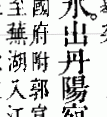 水。出丹陽宛
國府附郭宣
至蕪湖入江